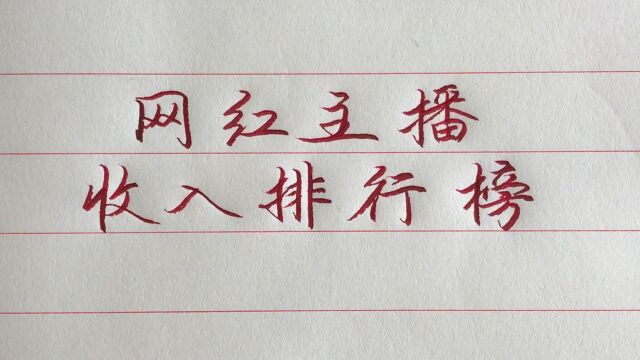 网红主播
收入排行榜